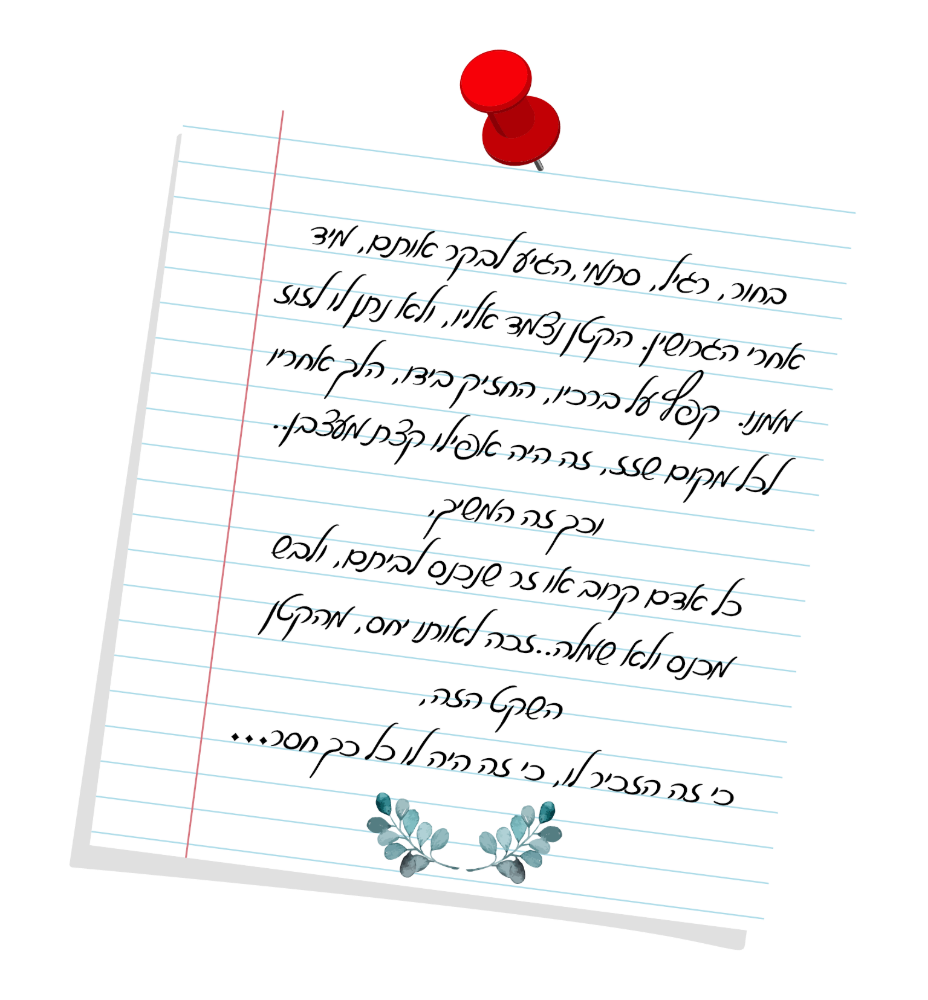 בחור, רגיל, סתמי ,הגיע לבקר אותם, מיד
אחרי הגרושין. הקטן נצמד אליו, ולא נתן לו לזוז
ממנו. קפץ על ברכיו, החזיק בידו, הלך אחריו
לכל מקום שזז, זה היה אפילו קצת מעצבן..
וכך זה המשיך,
כל אדם קרוב או זר שנכנס לביתם, ולבש
מכנס ולא שמלה..זכה לאותו יחס, מהקטן
השקט הזה,
כי זה הזכיר לו, כי זה היה לו כל כך חסר...